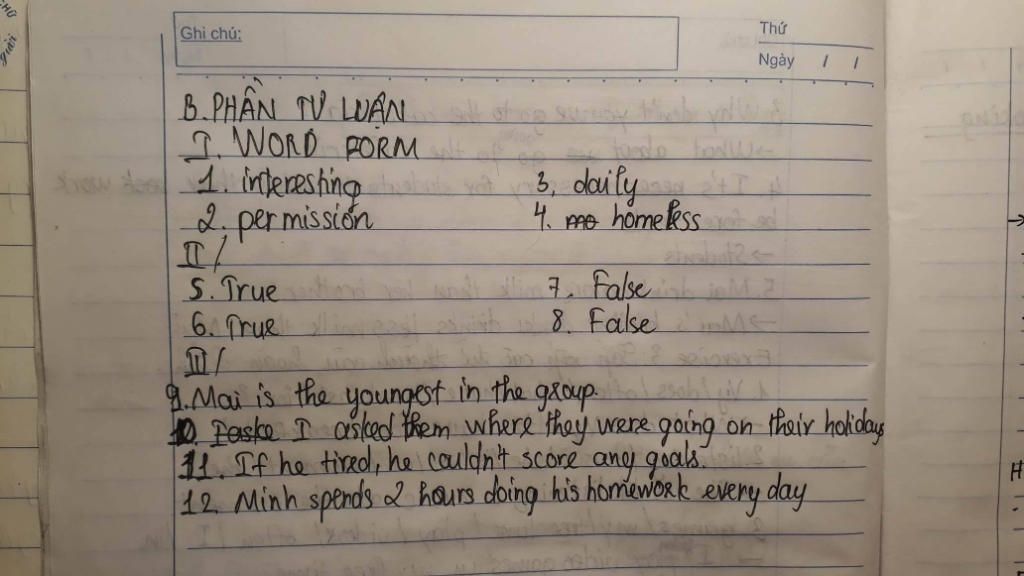 Ghi chú:
Thứ
Ngày / /
B. PHẦN TỰ LUẬN
I. WORD FORM
1. interesting 3. daily
2. permission 4. homeless
II/
5. True 7. False
6. True 8. False
III/
9. Mai is the youngest in the group.
10. I asked them where they were going on their holidays
11. If he tired, he couldn't score any goals.
12. Minh spends 2 hours doing his homework every day